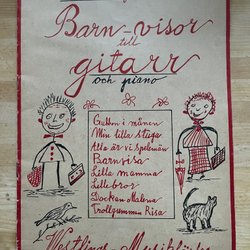 Barn-visor
till
gitarr
och piano
Gubben i månen
Min lilla stuga
Alla är vi spelemän
Barnvisa
Lilla mamma
Lille bror
Dockan Malena
Trollgumman Risa
Westlings Musikförlag